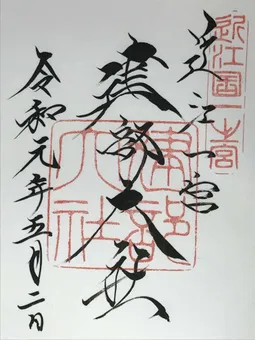 近江一宮
建部大社
令和元年五月二日
近江国一之宮
建部大社